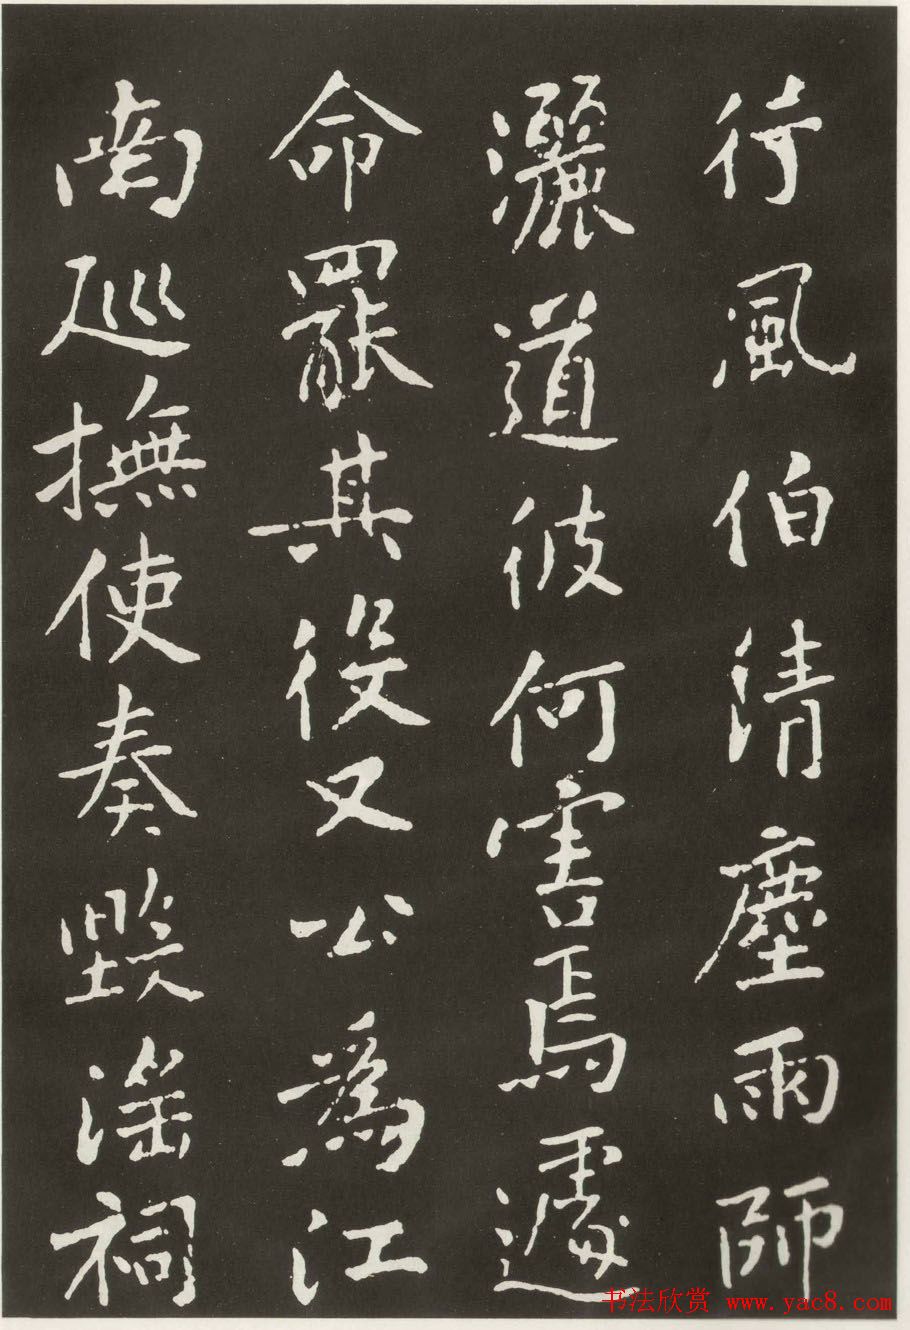 待風伯清塵雨師
灑道彼何害焉遽
命罷其役又公為江
南巡撫使奏毀淫祠
书法欣赏 www.yac8.com